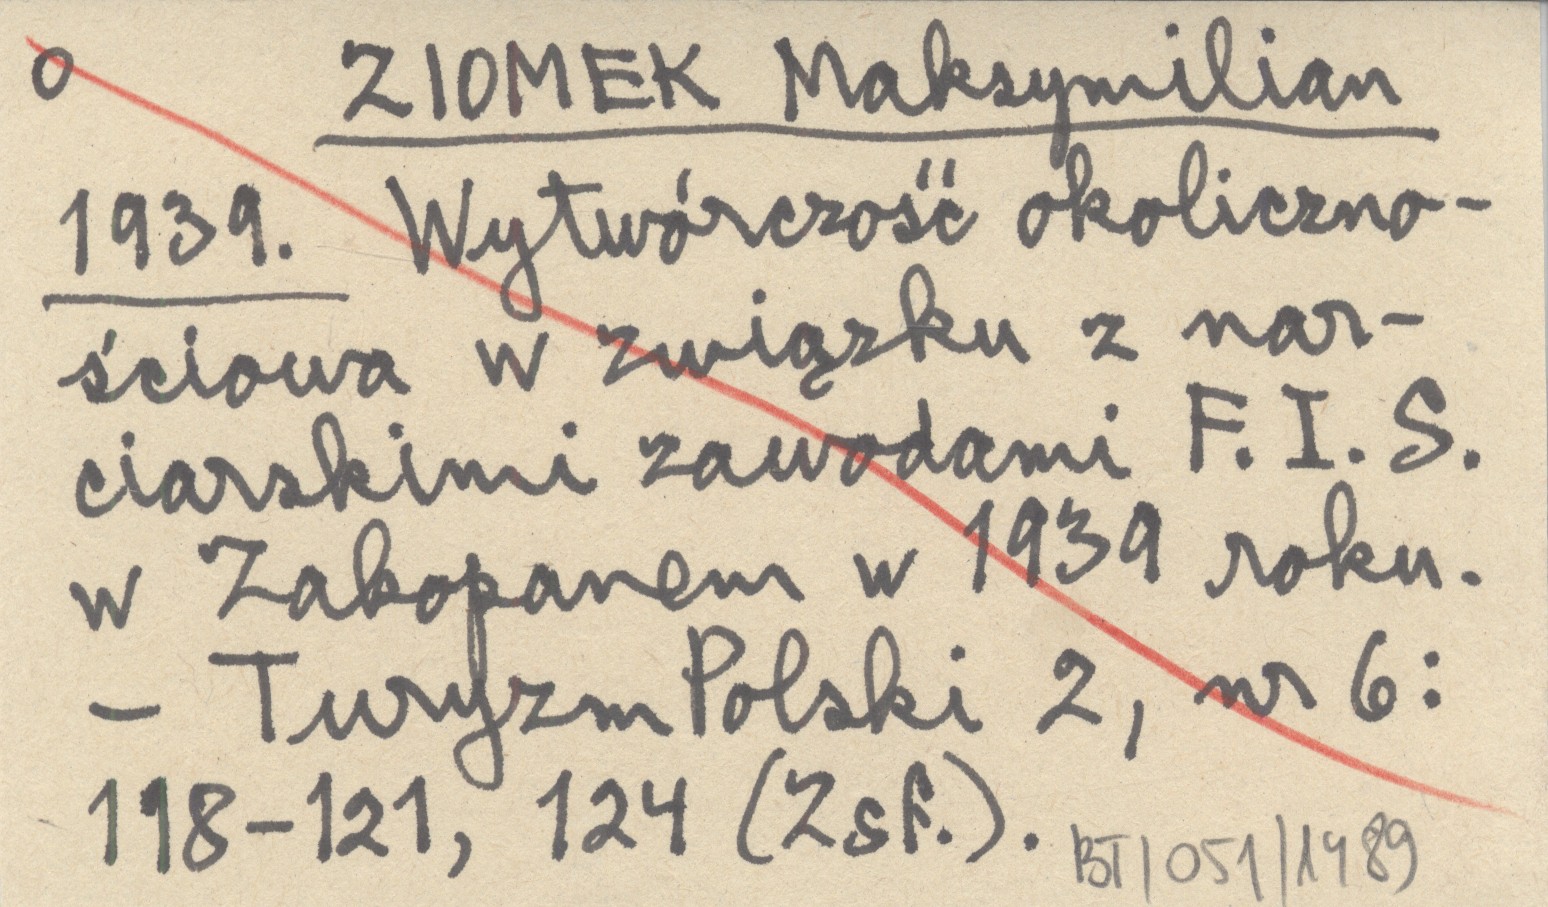 O ZIOMEK Maksymilian
1939. Wytwórczość okoliczno-
ściowa w związku z nar-
ciarskimi zawodami F. I. S.
w Zakopanem w 1939 roku.
- Turyzm Polski 2, nr 6:
118-121, 124 (Zsf.).
BT/051/1489